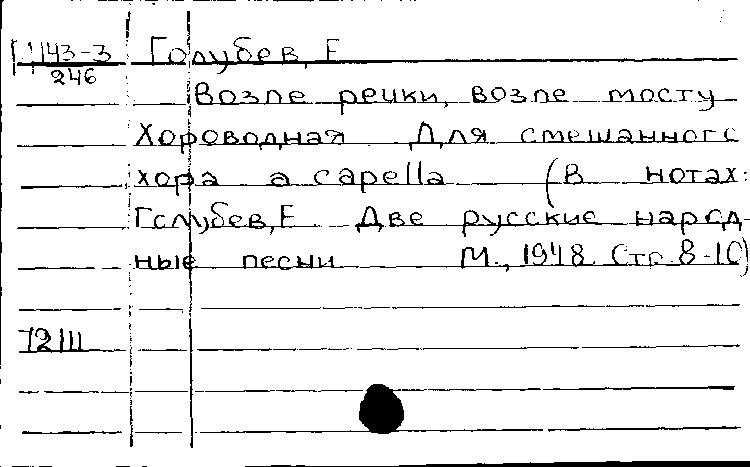 Г 143-3 Голубев, Е
246
Возле речки, возле мосту
Хороводная Для смешанного
хора a capella (В нотах:
Голубев, Е Две русские народ-
ные песни М., 1948. Стр. 8-10)
72111